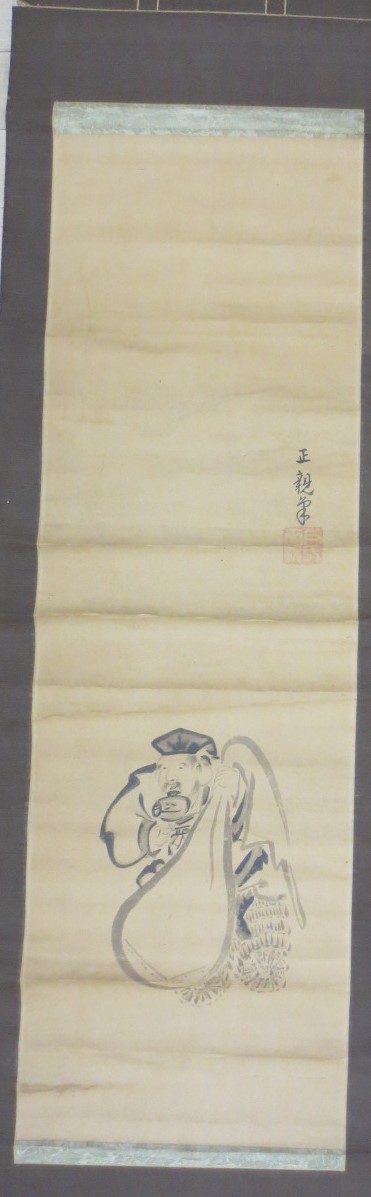 正親筆